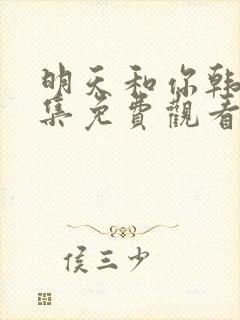 明天和你韩
集免費觀看
侯三少